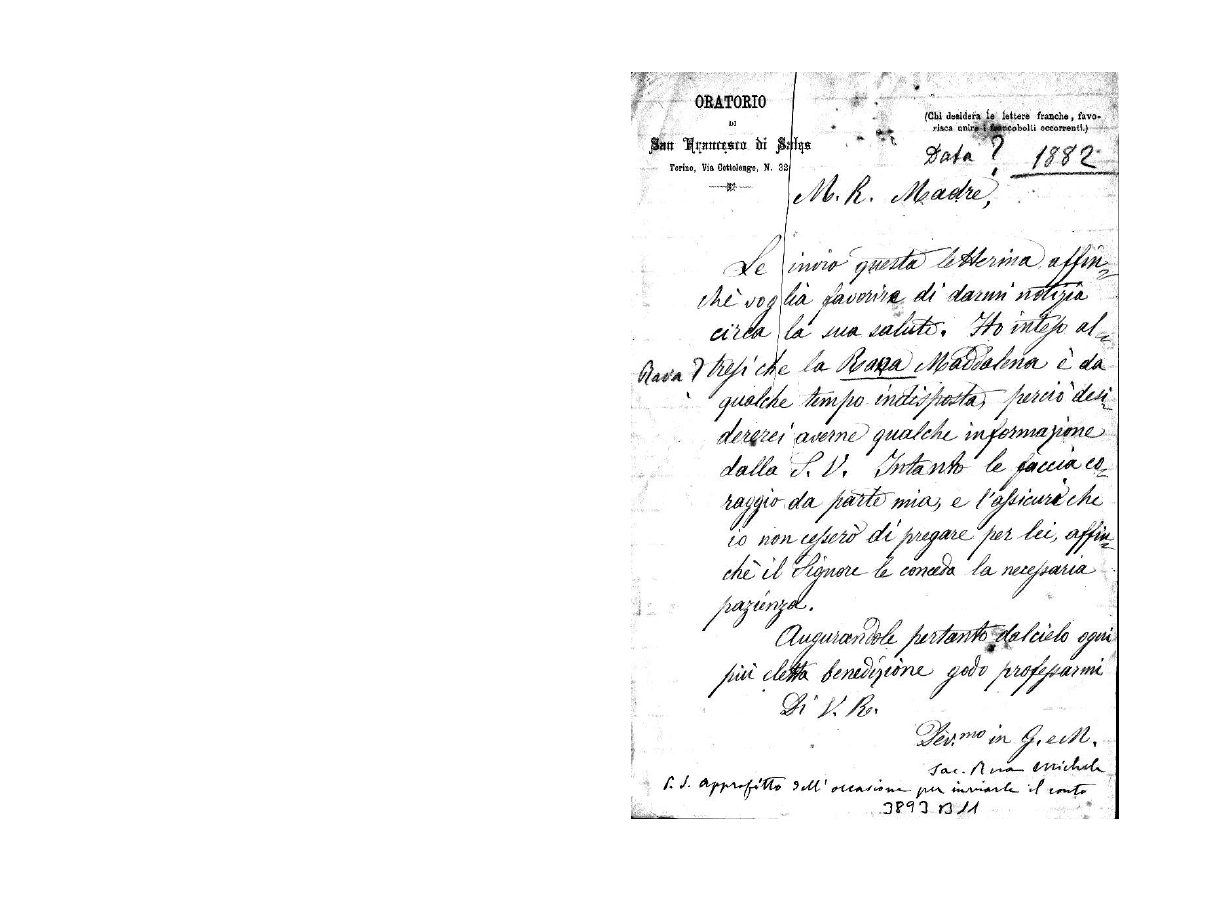 ORATORIO
DI
San Francesco di Sales
Torino, Via Cottolengo, N. 32
(Chi desidera le lettere franche, favo-
risca unire i francobolli occorrenti.)
Data ? 1882
M. R. Madre,
Le invio questa letterina affin=
chè voglia favorire di darmi notizia
circa la sua salute. Ho inteso al=
Rava ? tresì che la Rava Maddalena è da
qualche tempo indisposta, perciò desi=
dererei averne qualche informazione
dalla S. V. Intanto le faccia co=
raggio da parte mia, e l'assicuri che
io non cesserò di pregare per lei, affin=
chè il Signore le conceda la necessaria
pazienza.
Augurandole pertanto dal cielo ogni
più eletta benedizione godo professarmi
Di V. R.
Dev.mo in G. e M.
Sac. Rua Michele
P. S. Approfitto dell'occasione per inviarle il conto
3893 B 11